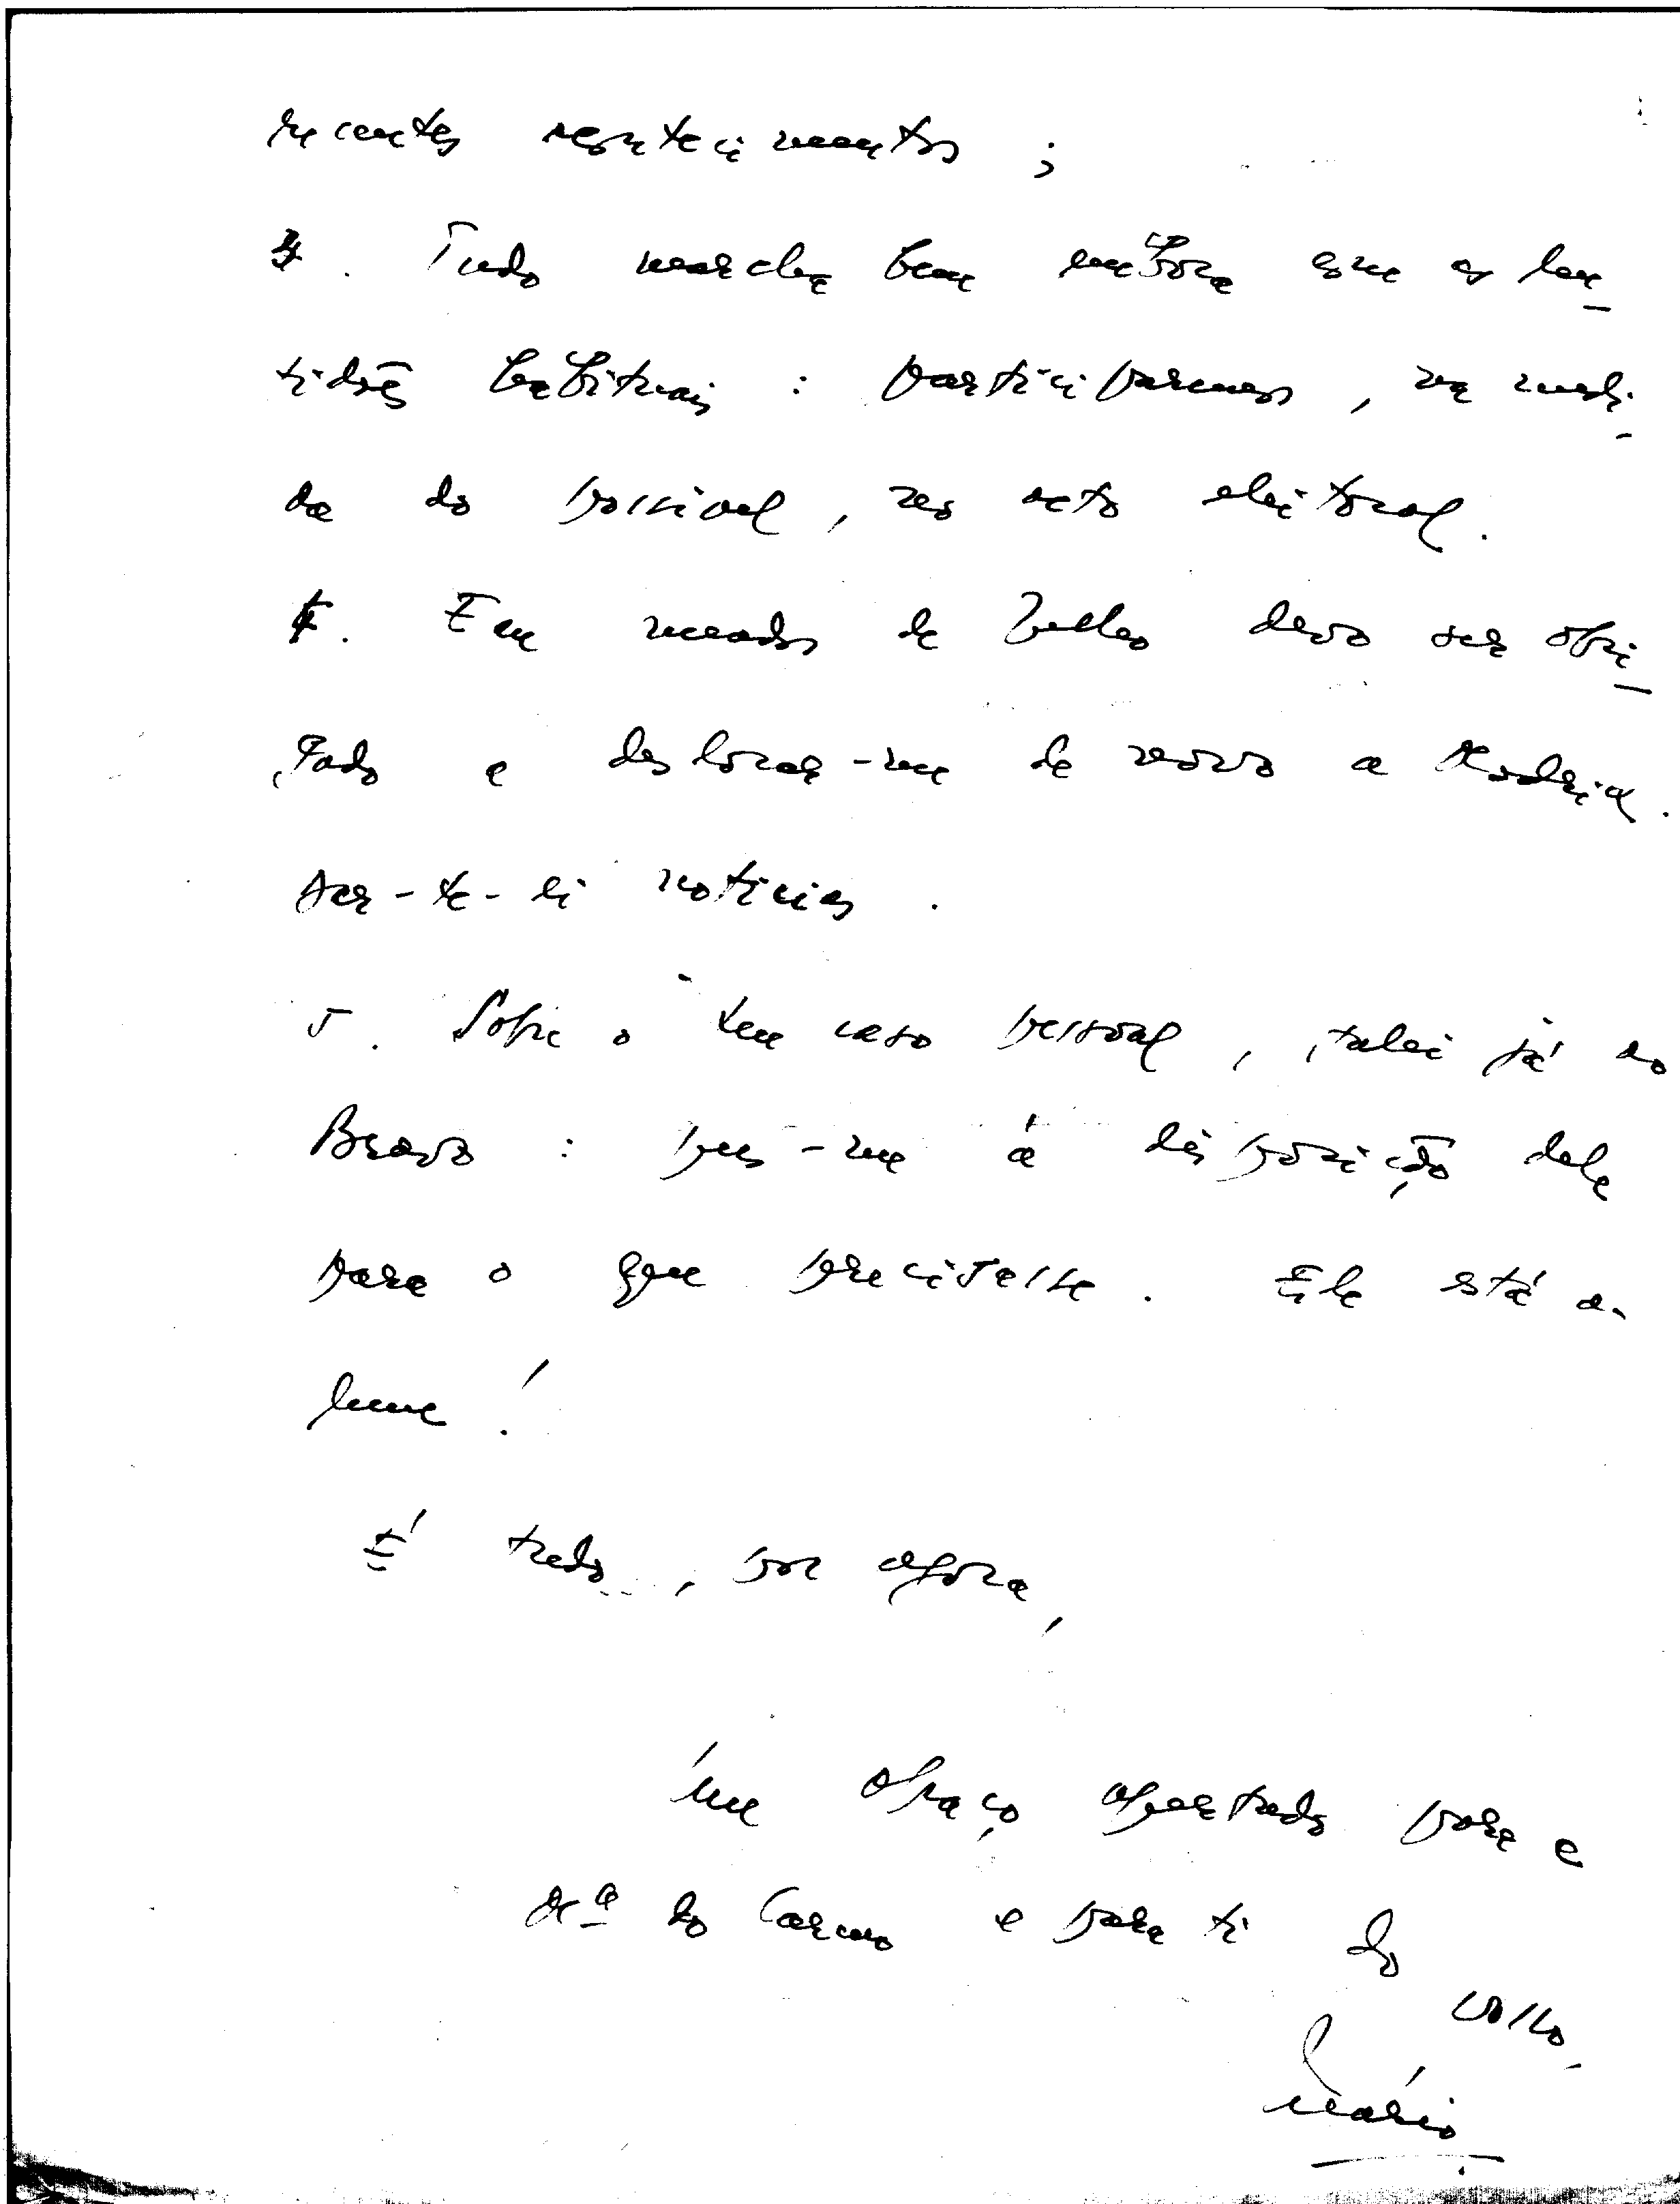 recentes acontecimentos;
3. Tudo marcha bem embora com as len_
tidões habituais: participaremos, na medi_
da do possível, no acto eleitoral.
4. Em meados de Julho devo ser obri_
gado a deslocar-me de novo a Madrid.
Dar-te-ei notícias.
5. Sobre o teu caso pessoal, falei já ao
Bravo: pus-me à disposição dele
para o que precisasse. Ele está a-
É tudo, por agora,
Um abraço apertado para a
Mª do Carmo e para ti do
vosso,
Mário